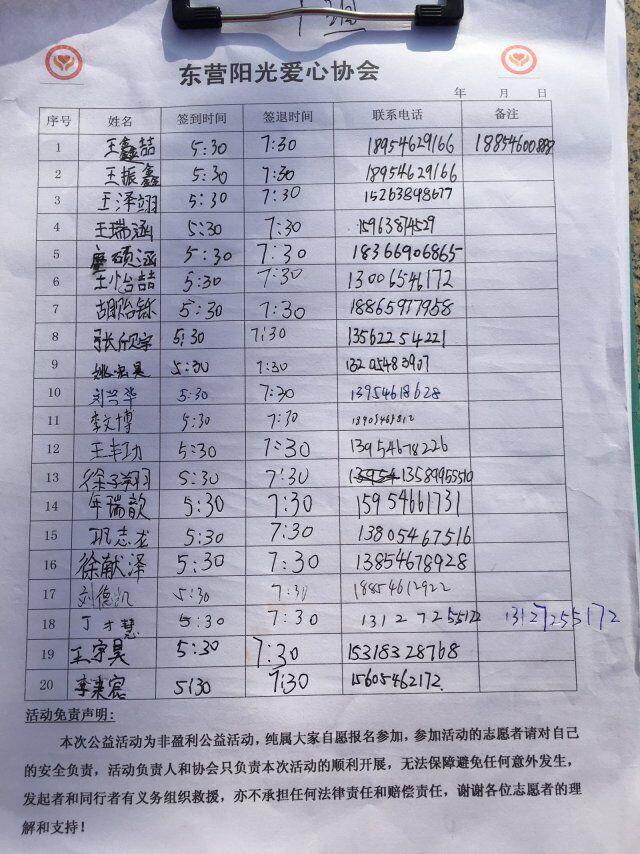 东营阳光爱心协会
年 月 日
序号 姓名 签到时间 签退时间 联系电话 备注
1 王鑫喆 5:30 7:30 18954629166 18854600888
2 王振鑫 5:30 7:30 18954629166
3 王泽翊 5:30 7:30 15263898677
4 王瑞涵 5:30 7:30 15963874529
5 硕涵 5:30 7:30 18366906865
6 王怡喆 5:30 7:30 13006546172
7 胡贻铄 5:30 7:30 18865977958
8 张欣宇 5:30 7:30 13562254221
9 5:30 7:30 13205483907
10 刘兰华 5:30 7:30 13954618628
11 李文博 5:30 7:30
12 王丰功 5:30 7:30 13954678226
13 徐子翔 5:30 7:30 13589965510
14 年瑞歆 5:30 7:30 15954661731
15 巩志龙 5:30 7:30 13805467516
16 徐献泽 5:30 7:30 13854678928
17 刘德凯 5:30 7:30 18854612922
18 丁才慧 5:30 7:30 13127255172 13127255172
19 王宇昊 5:30 7:30 15318328768
20 李来宸 5:30 7:30 15605462172
活动免责声明:
本次公益活动为非盈利公益活动，纯属大家自愿报名参加，参加活动的志愿者请对自己
的安全负责，活动负责人和协会只负责本次活动的顺利开展，无法保障避免任何意外发生，
发起者和同行者有义务组织救援，亦不承担任何法律责任和赔偿责任，谢谢各位志愿者的理
解和支持！